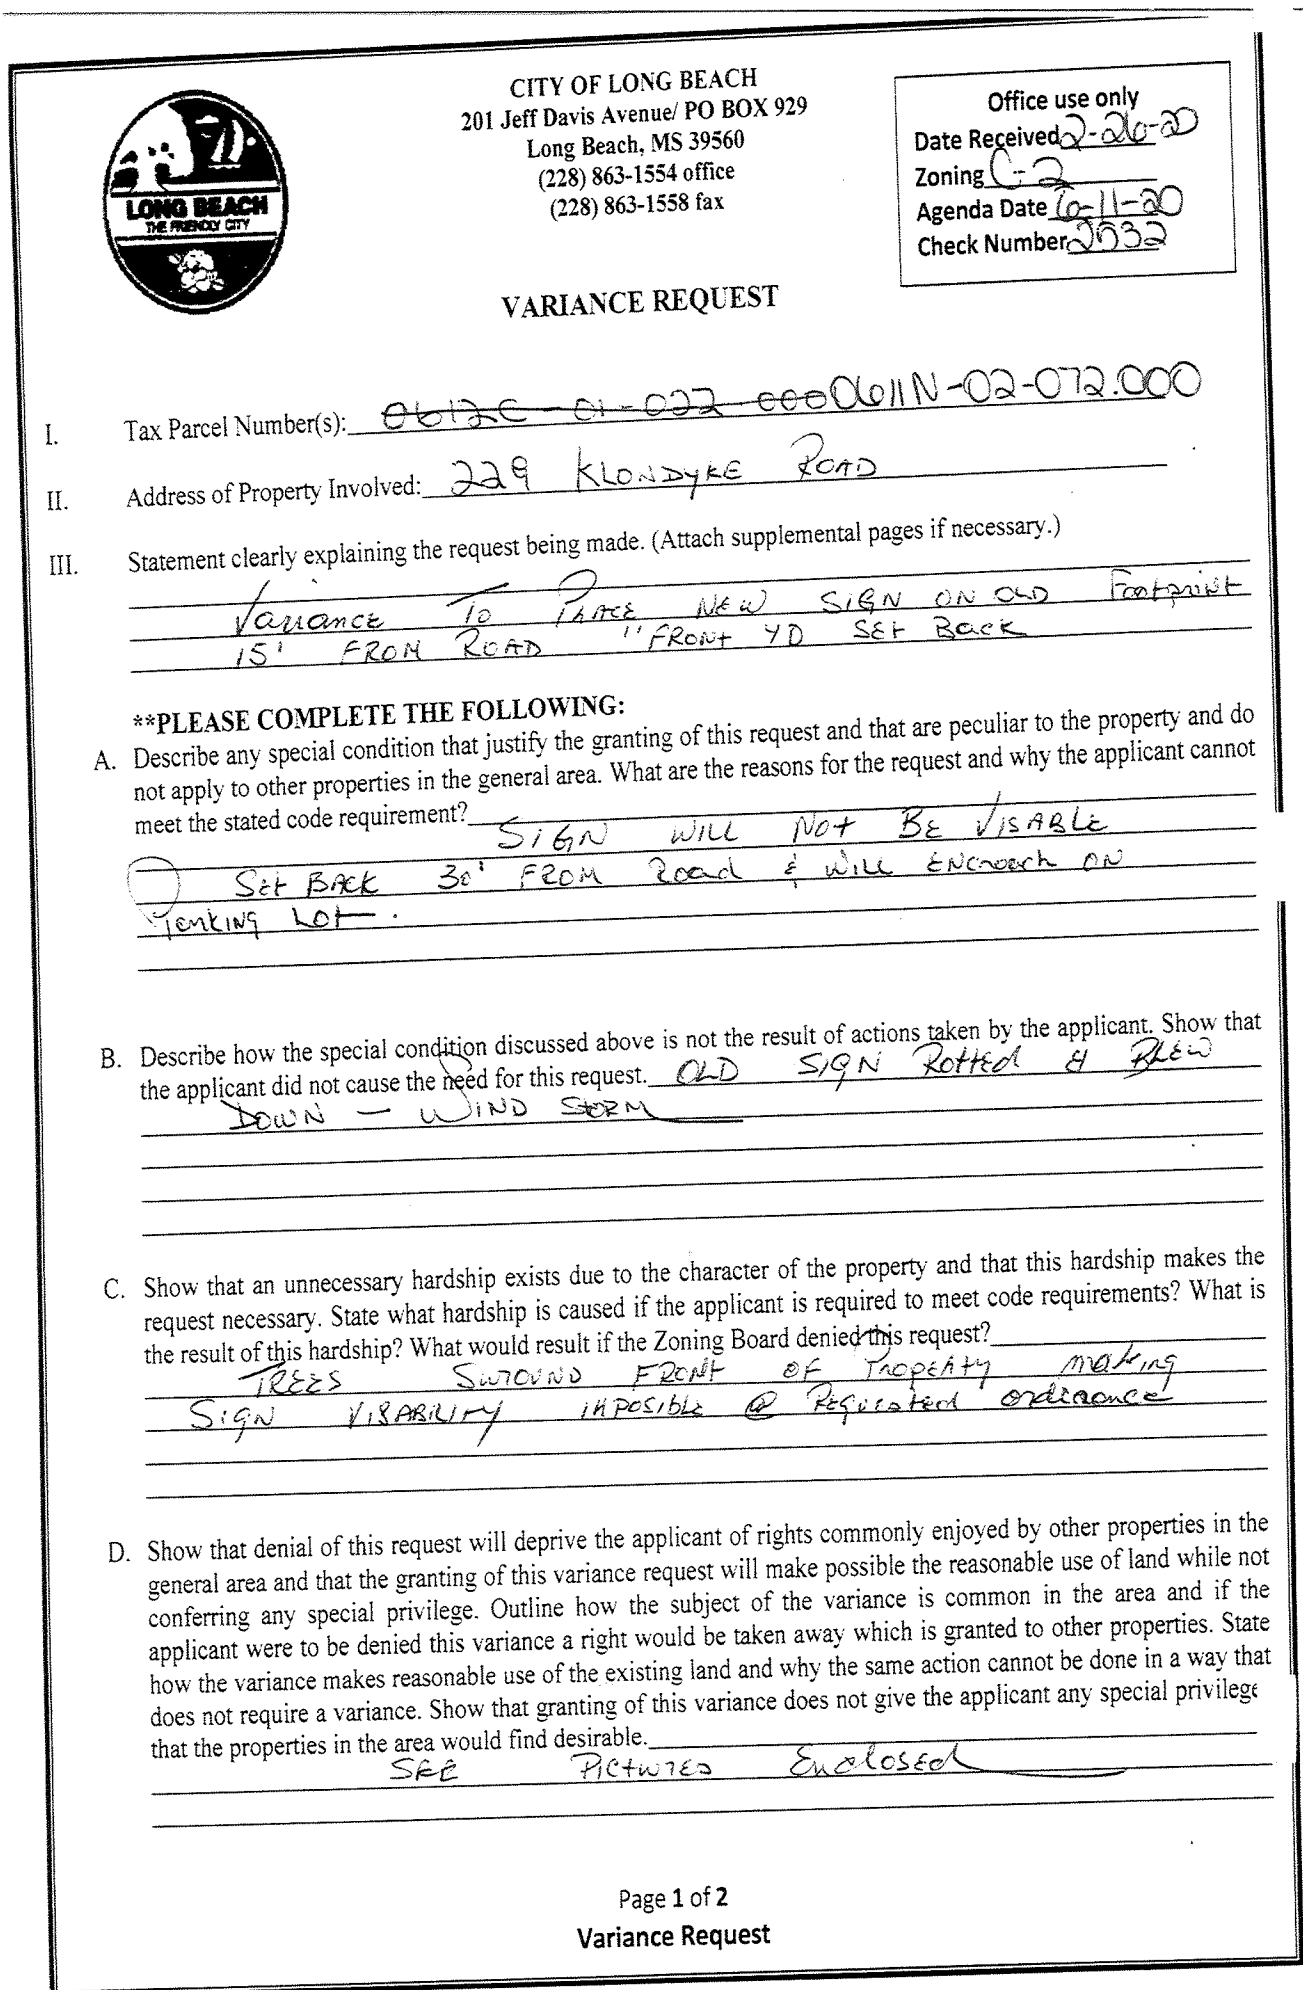 CITY OF LONG BEACH
201 Jeff Davis Avenue/ PO BOX 929
Long Beach, MS 39560
(228) 863-1554 office
(228) 863-1558 fax
LONG BEACH
THE FRIENDLY CITY
Office use only
Date Received 2-26-20
Zoning C-2
Agenda Date 6-11-20
Check Number 2532
VARIANCE REQUEST
I. Tax Parcel Number(s): 0612C-01-022-000 0611N-02-072.000
II. Address of Property Involved: 229 KLONDYKE ROAD
III. Statement clearly explaining the request being made. (Attach supplemental pages if necessary.)
Variance To PLACE NEW SIGN ON OLD Footprint
15' FROM ROAD "FRONT YD SET BACK
**PLEASE COMPLETE THE FOLLOWING:
A. Describe any special condition that justify the granting of this request and that are peculiar to the property and do
not apply to other properties in the general area. What are the reasons for the request and why the applicant cannot
meet the stated code requirement? SIGN WILL NOT BE VISABLE
SET BACK 30' FROM Road & WILL ENCROACH ON
PARKING LOT.
B. Describe how the special condition discussed above is not the result of actions taken by the applicant. Show that
the applicant did not cause the need for this request. OLD SIGN ROTTED & BLEW
DOWN - WIND STORM
C. Show that an unnecessary hardship exists due to the character of the property and that this hardship makes the
request necessary. State what hardship is caused if the applicant is required to meet code requirements? What is
the result of this hardship? What would result if the Zoning Board denied this request?
TREES SUROUND FRONT OF PROPERTY making
SIGN VISABILITY IMPOSIBLE @ Requested ordinance
D. Show that denial of this request will deprive the applicant of rights commonly enjoyed by other properties in the
general area and that the granting of this variance request will make possible the reasonable use of land while not
conferring any special privilege. Outline how the subject of the variance is common in the area and if the
applicant were to be denied this variance a right would be taken away which is granted to other properties. State
how the variance makes reasonable use of the existing land and why the same action cannot be done in a way that
does not require a variance. Show that granting of this variance does not give the applicant any special privilege
that the properties in the area would find desirable.
SEE PICTURES Enclosed
Page 1 of 2
Variance Request